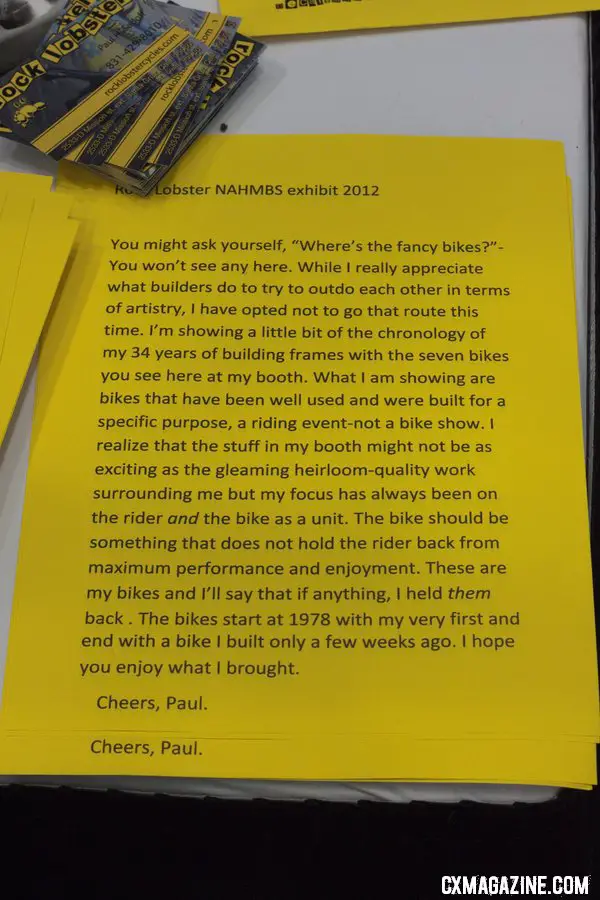 rocklobstercycles.com
Lobster NAHMBS exhibit 2012
You might ask yourself, “Where’s the fancy bikes?”-
You won’t see any here. While I really appreciate
what builders do to try to outdo each other in terms
of artistry, I have opted not to go that route this
time. I’m showing a little bit of the chronology of
my 34 years of building frames with the seven bikes
you see here at my booth. What I am showing are
bikes that have been well used and were built for a
specific purpose, a riding event-not a bike show. I
realize that the stuff in my booth might not be as
exciting as the gleaming heirloom-quality work
surrounding me but my focus has always been on
the rider and the bike as a unit. The bike should be
something that does not hold the rider back from
maximum performance and enjoyment. These are
my bikes and I’ll say that if anything, I held them
back . The bikes start at 1978 with my very first and
end with a bike I built only a few weeks ago. I hope
you enjoy what I brought.
Cheers, Paul.
Cheers, Paul.
CXMAGAZINE.COM